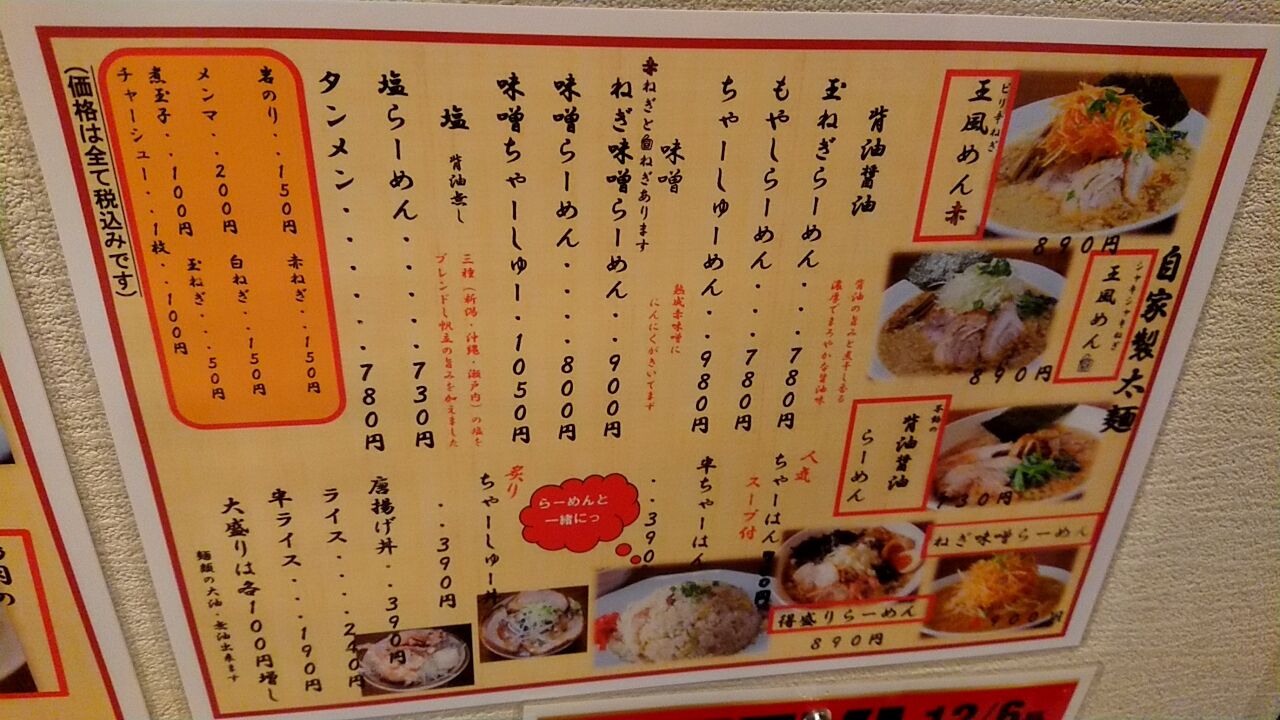 自家製太麺
ピリ辛ねぎ
王風めん赤
890円
シャキシャキねぎ
王風めん白
890円
背油醤油
らーめん
730円
ねぎ味噌らーめん
900円
得盛りらーめん
890円
背油醤油
背油の旨みと煮干し香る
濃厚でまろやかな醤油味
玉ねぎらーめん・・・780円
もやしらーめん・・・780円
ちゃーしゅーめん・・・980円
味噌
熟成赤味噌に
にんにくがきいてます
赤ねぎと白ねぎあります
ねぎ味噌らーめん・・・900円
味噌らーめん・・・・800円
味噌ちゃーしゅー・1050円
塩 背油無し
三種(新潟・沖縄・瀬戸内)の塩を
ブレンドし帆立の旨みを加えました
塩らーめん・・・・・730円
タンメン・・・・・・780円
岩のり・・150円
赤ねぎ・・150円
メンマ・・200円
白ねぎ・・150円
煮玉子・・100円
玉ねぎ・・・50円
チャーシュー・・1枚・・100円
(価格は全て税込みです)
人気
ちゃーはん
スープ付
半ちゃーはん
・・・390
らーめんと
一緒にっ
炙り
ちゃーしゅー丼
・・・390円
唐揚げ丼・・390円
ライス・・・・240円
半ライス・・・190円
大盛りは各100円増し
麺類の大油・無油出来ます
12/6